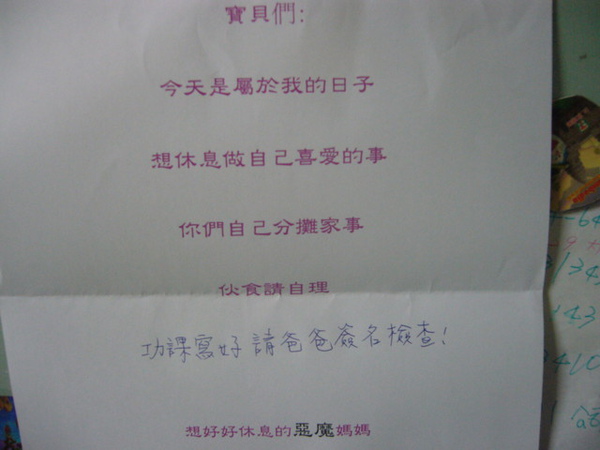 寶貝們:
今天是屬於我的日子
想休息做自己喜愛的事
你們自己分攤家事
伙食請自理
功課寫好請爸爸簽名檢查!
想好好休息的惡魔媽媽